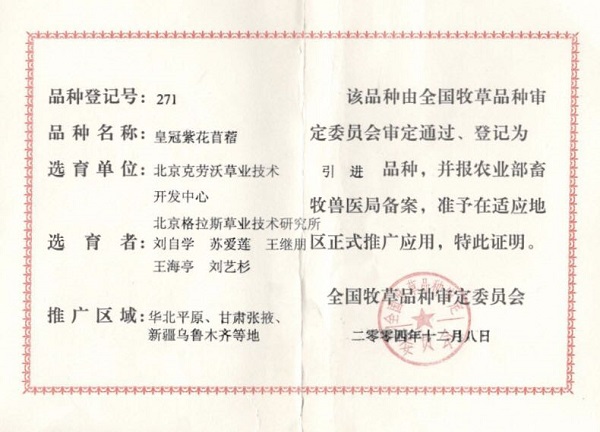 品种登记号：271
品种名称：皇冠紫花苜蓿
选育单位：北京克劳沃草业技术
开发中心
北京格拉斯草业技术研究所
选育者：刘自学 苏爱莲 王继朋
王海亭 刘艺杉
推广区域：华北平原、甘肃张掖、
新疆乌鲁木齐等地
该品种由全国牧草品种审
定委员会审定通过、登记为
引进 品种，并报农业部畜
牧兽医局备案，准予在适应地
区正式推广应用，特此证明。
全国牧草品种审定委员会
二零零四年十二月八日